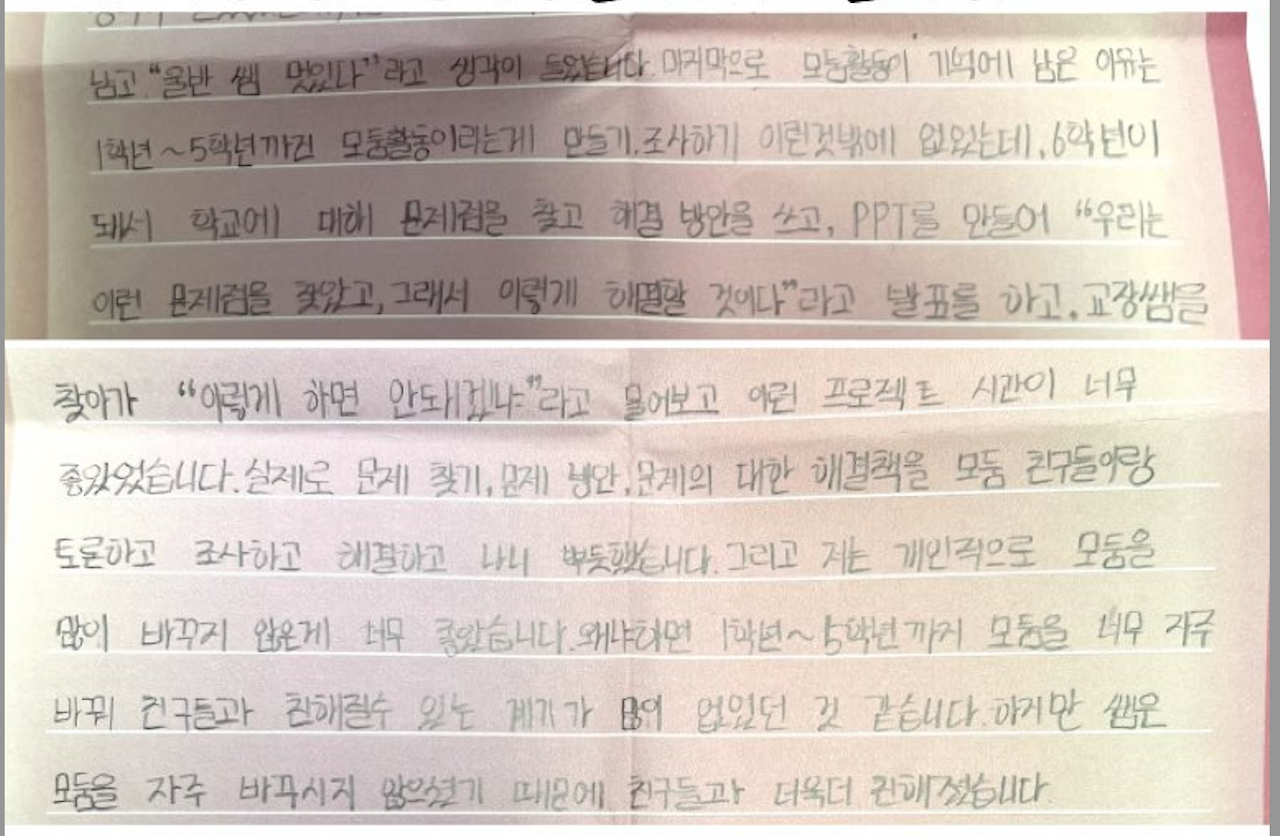 남고 "울반 쌤 멋있다"라고 생각이 들었습니다. 마지막으로 모둠활동이 기억에 남은 이유는
1학년~5학년까진 모둠활동이라는게 만들기.조사하기 이런것밖에 없었는데, 6학년이
돼서 학교에 대해 문제점을 찾고 해결 방안을 쓰고, PPT를 만들어 "우리는
이런 문제점을 찾았고, 그래서 이렇게 해결할 것이다"라고 발표를 하고, 교장쌤을
찾아가 "이렇게 하면 안되겠냐"라고 물어보고 이런 프로젝트 시간이 너무
좋았었습니다. 실제로 문제 찾기, 문제 방안, 문제의 대한 해결책을 모둠 친구들이랑
토론하고 조사하고 해결하고 나니 뿌듯했습니다. 그리고 저는 개인적으로 모둠을
많이 바꾸지 않은게 너무 좋았습니다. 왜냐하면 1학년~5학년까지 모둠을 너무 자주
바꿔 친구들과 친해질수 있는 계기가 많이 없었던 것 같습니다. 하지만 쌤은
모둠을 자주 바꾸시지 않으셨기 때문에 친구들과 더욱더 친해졌습니다